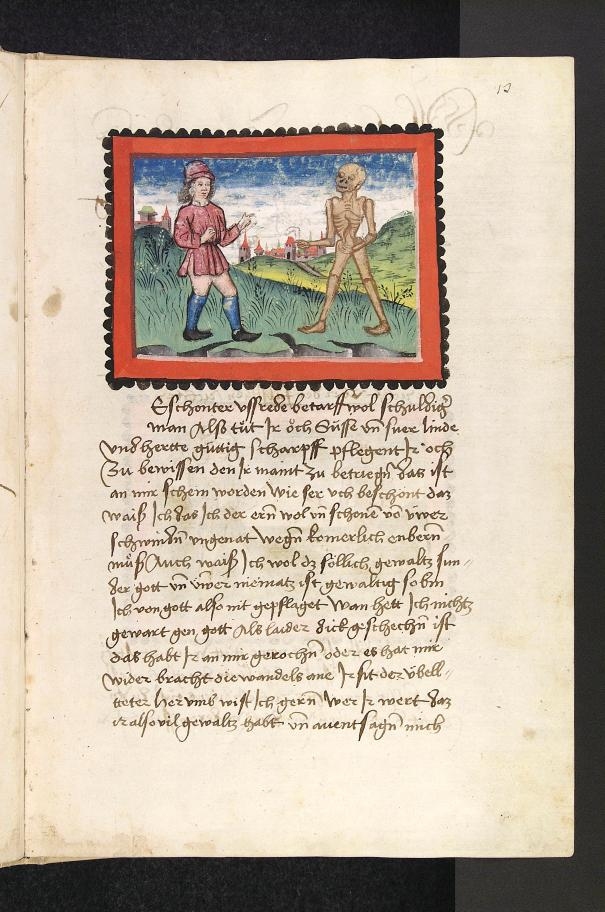 12
Eschonter vssrede betarff wol schuldig
man Also tüt Ir öch Süsse vn suer linde
vnd hertte güttig scharpff pflegent Ir och
Zu bewissen den Ir maint zu betriegn das ist
an mir schein worden Wie ser vch beschönt daz
waiß Ich das Ich der ern wol vn schone von üwer
schwindn vngenat wegn komerlich enbern
müß Auch waiß Ich wol dz söllich gewaltz sun=
der gott vn üwer niematz ist gewaltig so bin
Ich von gott also nit gepflaget Wan hett Ich nichtz
gewart gen gott Als laider dick geschechn ist
das habt Ir an mir gerochn oder es hat mir
wider bracht die wandels ane Ir sit der übell=
tteter Her vmb wist Ich gern Wer Ir wert daz
ir also vil gewaltz habt vn